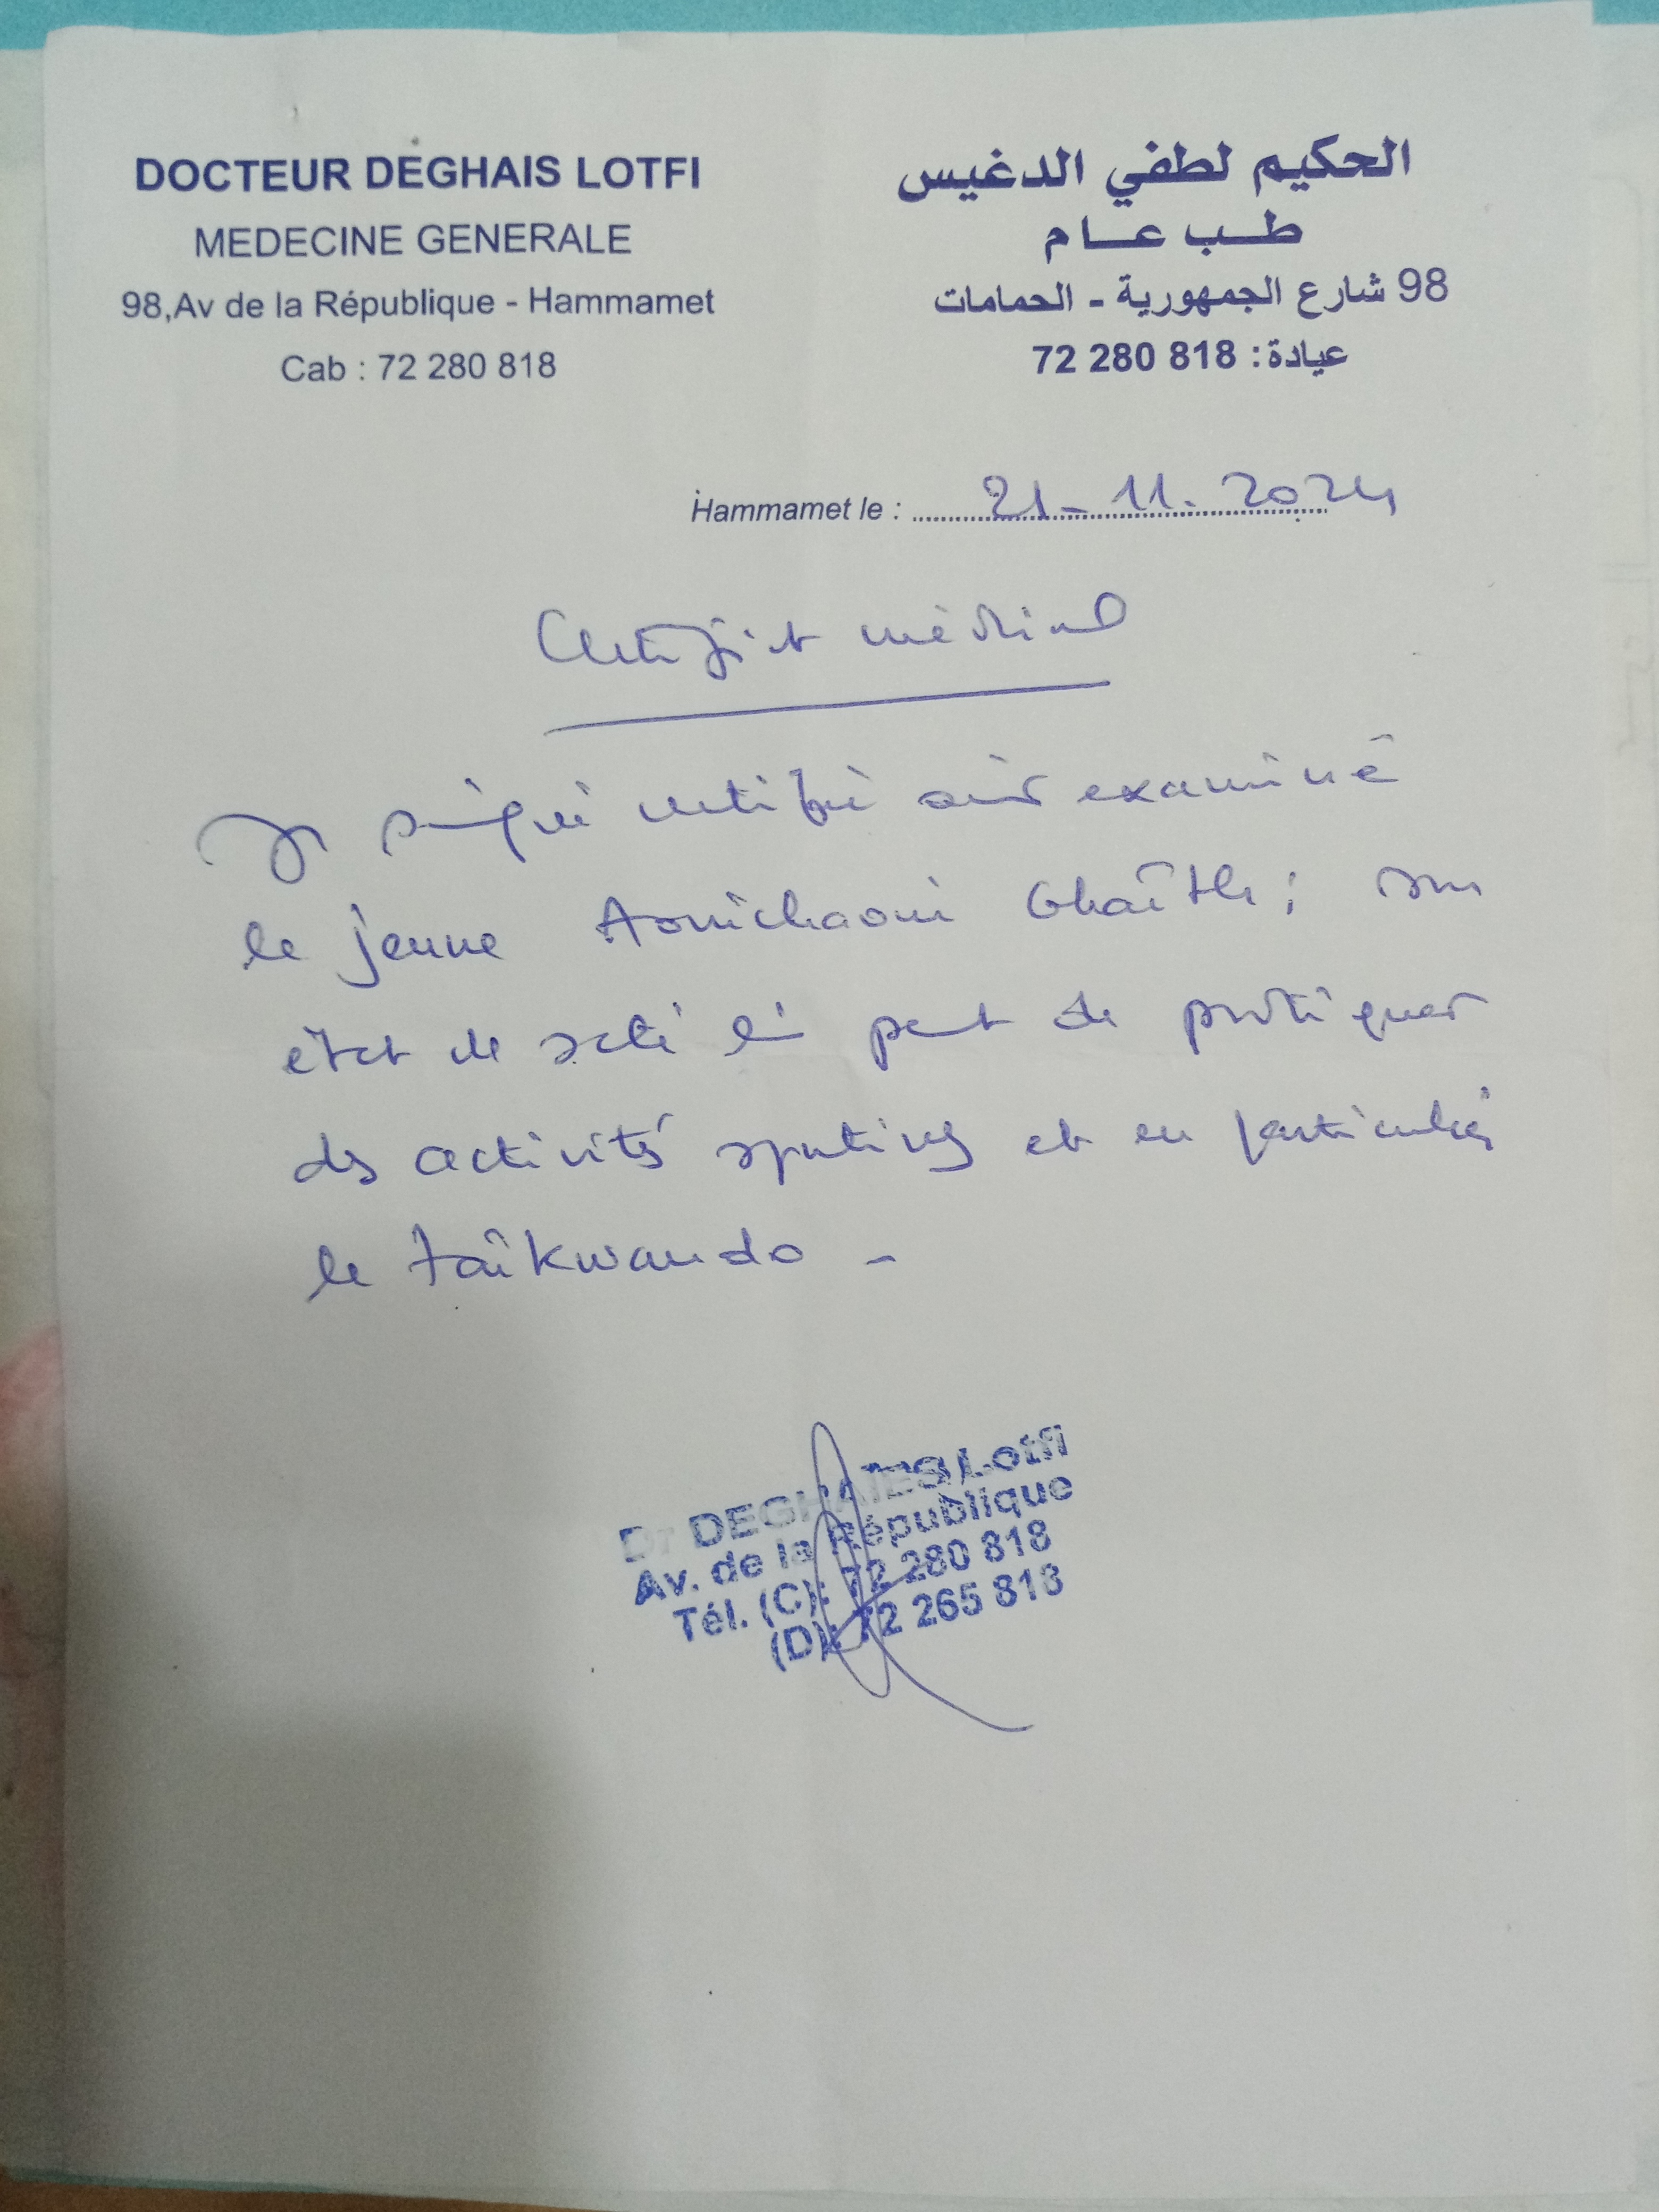 DOCTEUR DEGHAIS LOTFI
MEDECINE GENERALE
98,Av de la République - Hammamet
Cab : 72 280 818
الحكيم لطفي الدغيس
طب عام
98 شارع الجمهورية - الحمامات
عيادة: 72 280 818
Hammamet le : 21-11-2024
Certificat médical
Je soussigné certifie avoir examiné
le jeune Aouichaoui Ghaîth ; son
état de santé lui permet de pratiquer
des activités sportives et en particulier
le taîkwando -
Dr DEGHAIES Lotfi
Av. de la République
Tél. (C): 72 280 818
(D): 72 265 813